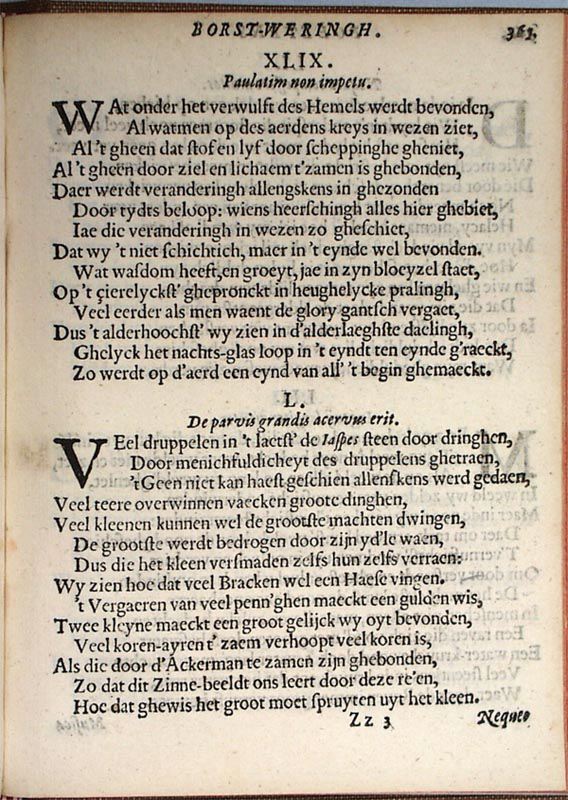 BORST-WERINGH. 363.
XLIX.
Paulatim non impetu.
WAt onder het verwulft des Hemels werdt bevonden,
Al watmen op des aerdens kreys in wezen ziet,
Al 't gheen dat ſtof en lyf door ſcheppinghe gheniet,
Al 't gheen door ziel en lichaem t'zamen is ghebonden,
Daer werdt veranderingh allengskens in ghezonden
Door tydts beloop: wiens heerſchingh alles hier ghebiet,
Iae die veranderingh in wezen zo gheſchiet,
Dat wy 't niet ſchichtich, maer in 't eynde wel bevonden.
Wat wasdom heeft, en groeyt, jae in zyn bloeyzel ſtaet,
Op 't çierelyckſt' ghepronckt in heughelycke pralingh,
Veel eerder als men waent de glory gantſch vergaet,
Dus 't alderhoochſt' wy zien in d'alderlaeghſte daelingh,
Ghelyck het nachts-glas loop in 't eyndt ten eynde g'raeckt,
Zo werdt op d'aerd een eynd van all' 't begin ghemaeckt.
L.
De parvis grandis acervus erit.
VEel druppelen in 't laetſt' de Iaſpes ſteen door dringhen,
Door menichfuldicheyt des druppelens ghetraen,
't Geen niet kan haeſt geſchien allenſkens werd gedaen,
Veel teere overwinnen vaecken groote dinghen,
Veel kleenen kunnen wel de grootſte machten dwingen,
De grootſte werdt bedrogen door zijn yd'le waen,
Dus die het kleen verſmaden zelfs hun zelfs verraen:
Wy zien hoe dat veel Bracken wel een Haeſe vingen.
't Vergaeren van veel penn'ghen maeckt een gulden wis,
Twee kleyne maeckt een groot gelijck wy oyt bevonden,
Veel koren-ayren t' zaem verhoopt veel koren is,
Als die door d'Ackerman te zamen zijn ghebonden,
Zo dat dit Zinne-beeldt ons leert door deze re'en,
Hoe dat ghewis het groot moet ſpruyten uyt het kleen.
Zz 3 Nequeo